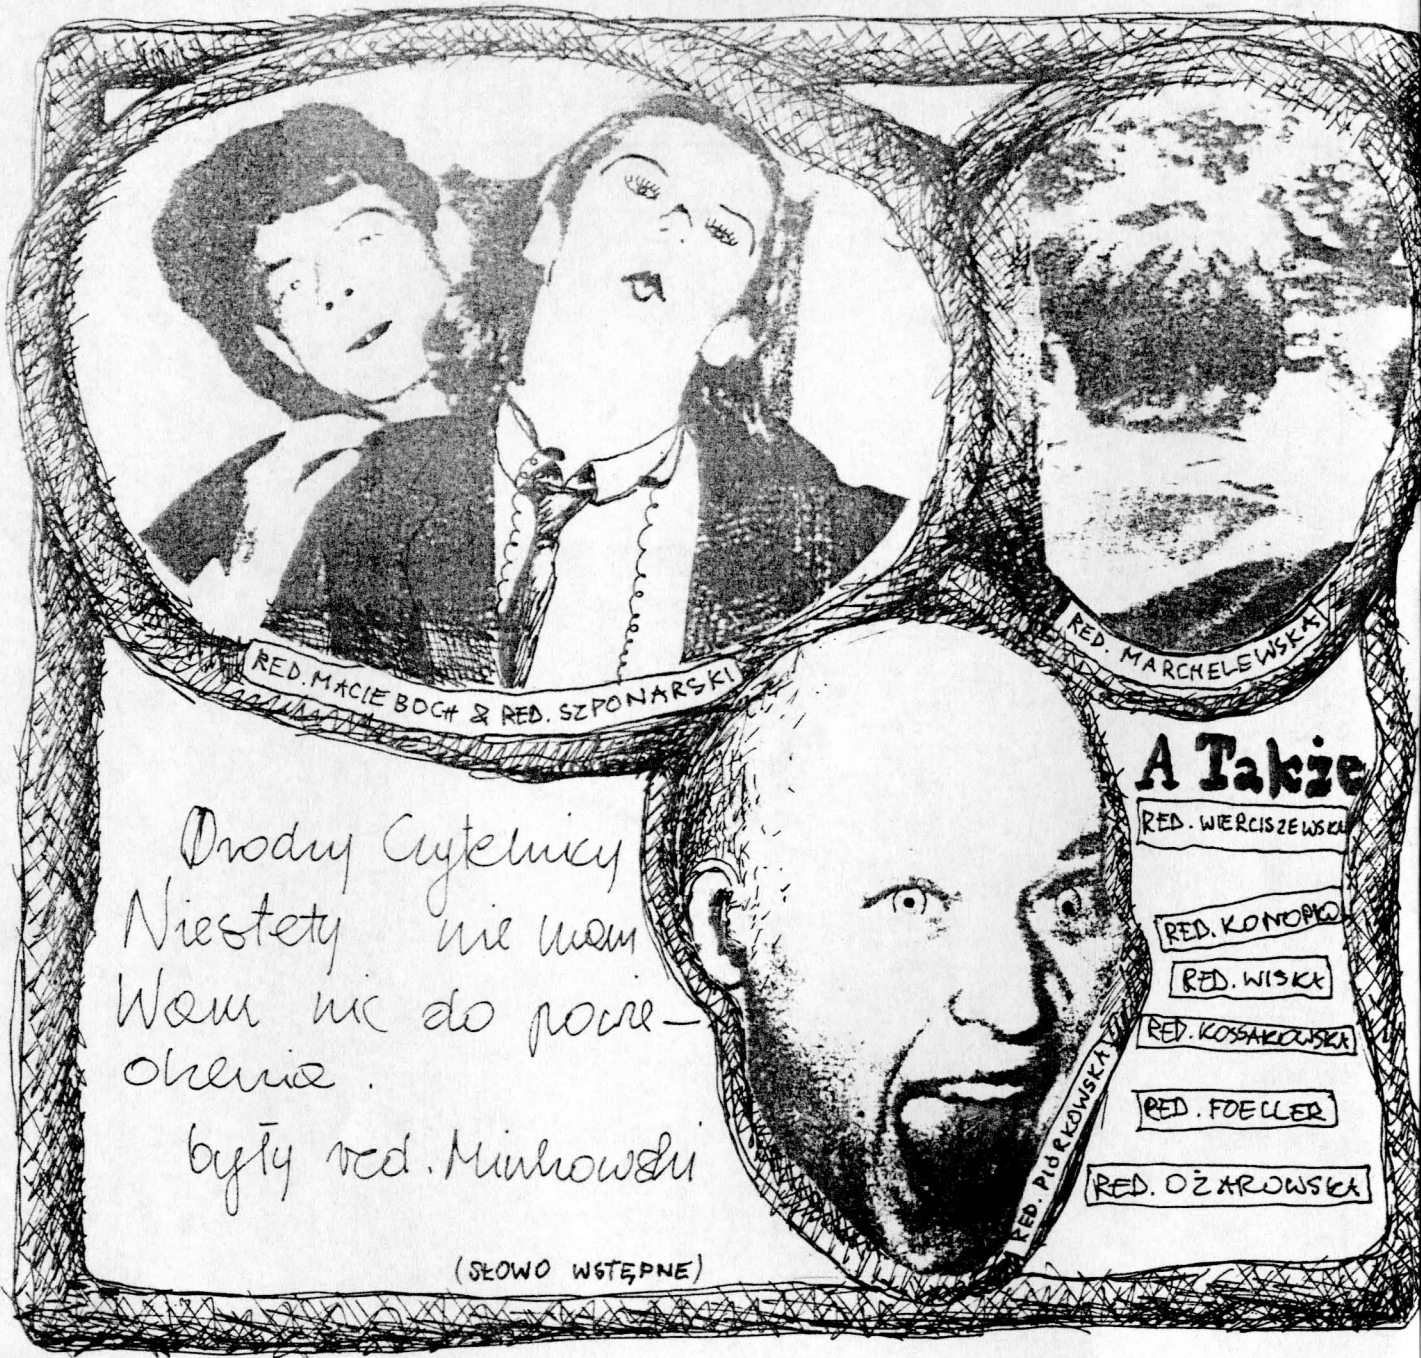 RED. MACIEBOCH & RED. SZPONARSKI
RED. MARCHELEWSKA
A Także
RED. WIERCISZEWSKA
RED. KONOPKO
RED. WISKA
RED. KOSSAKOWSKA
RED. FOELLER
RED. OŻAROWSKA
RED. PIÓRKOWSKA
Drodzy Czytelnicy
Niestety nie mam
Wam nic do powie-
dzenia.
były red. Minkowski
(SŁOWO WSTĘPNE)